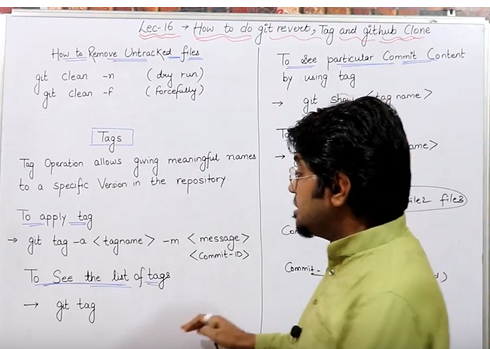 Lec-16 → How to do git revert, Tag and github Clone
How to Remove Untracked files
git clean -n (dry run)
git clean -f (forcefully)
Tags
Tag Operation allows giving meaningful names
to a specific Version in the repository
To apply tag
→ git tag -a <tagname> -m <message>
<Commit-ID>
To See the list of tags
→ git tag
To see particular Commit Content
by using tag
→ git show <tag name>
To
→ name>
file2 file3
Commit